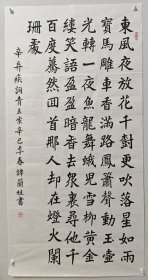 東風夜放花千樹更吹落星如雨
寶馬雕車香滿路鳳簫聲動玉壺
光轉一夜魚龍舞蛾兒雪柳黃金
縷笑語盈盈暗香去衆裏尋他千
百度驀然回首那人却在燈火闌
珊處
辛弃疾詞青玉案辛巳春譚蘭書